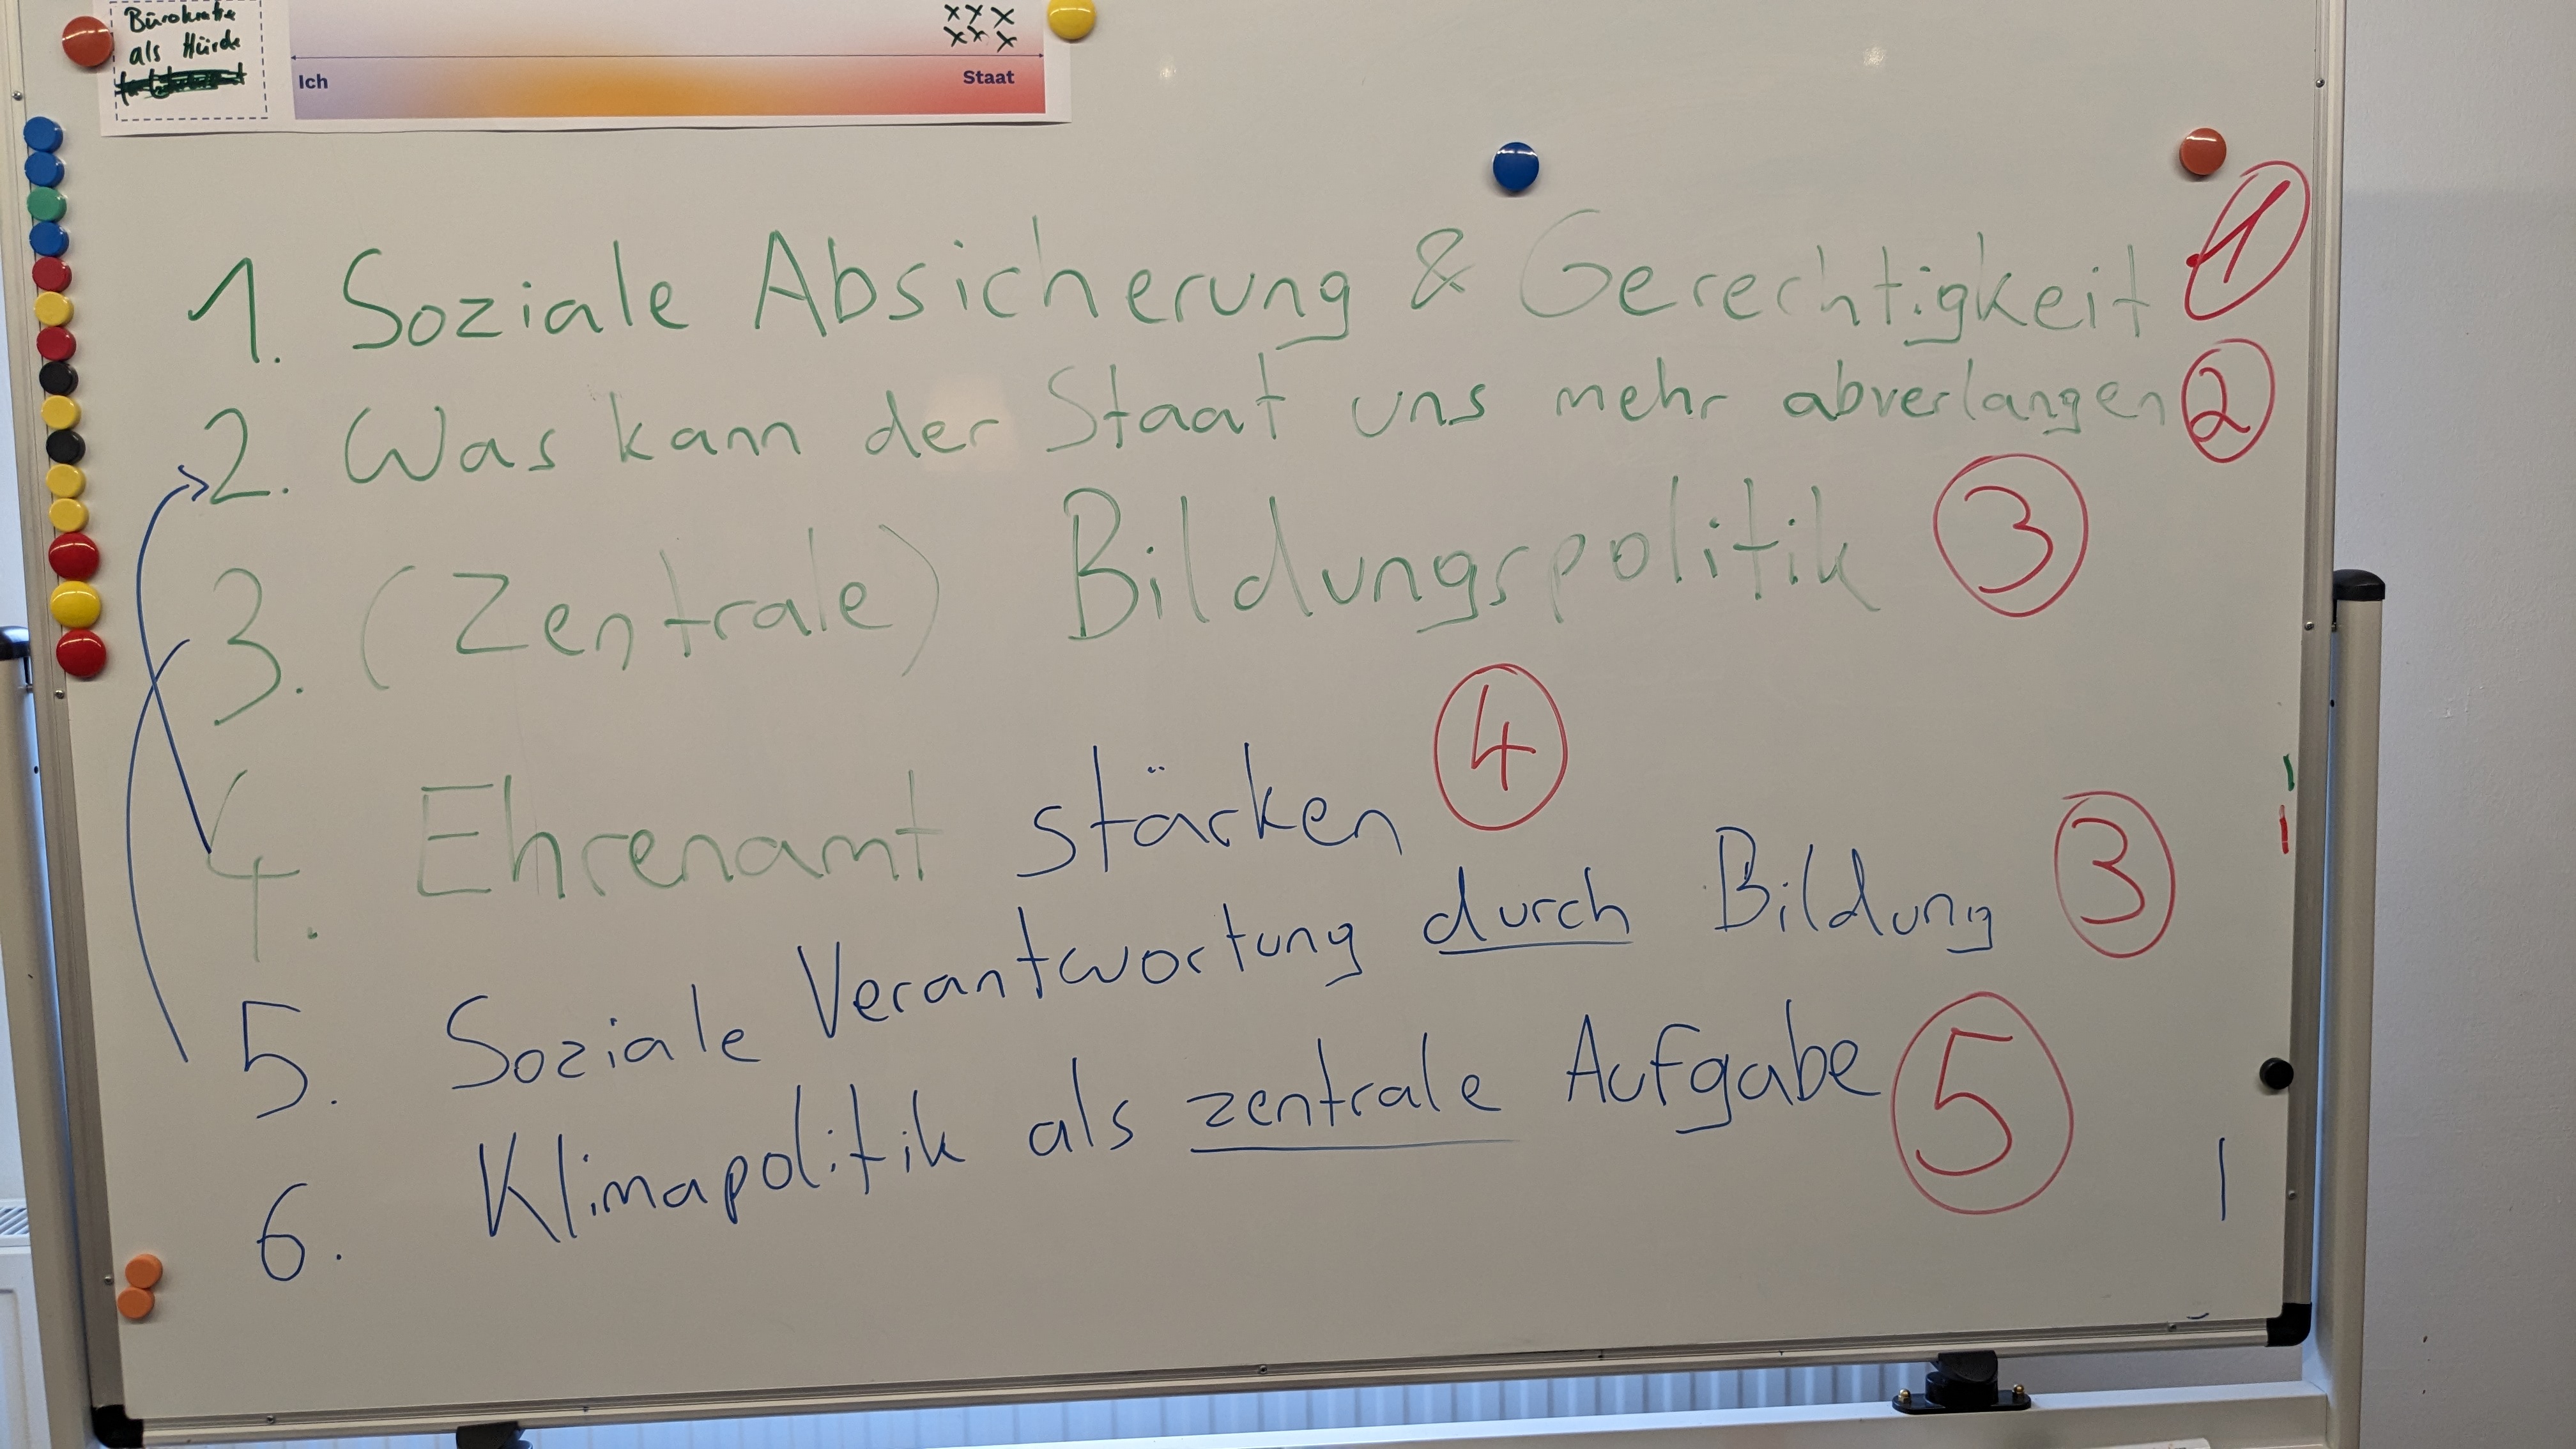 Bürokratie
als Hürde
Ich
Staat
1. Soziale Absicherung & Gerechtigkeit 1
2. Was kann der Staat uns mehr abverlangen 2
3. (Zentrale) Bildungspolitik 3
4. Ehrenamt stärken 4
5. Soziale Verantwortung durch Bildung 3
6. Klimapolitik als zentrale Aufgabe 5